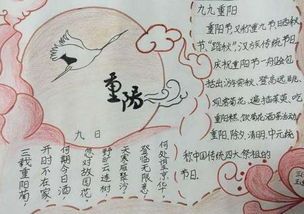 九九重阳
重阳节,又称重九节,晒秋
节,“踏秋”,汉族传统节日。
庆祝重阳节一般会包
括出游赏秋、登高远眺、
观赏菊花、遍插茱萸、吃
重阳糕、饮菊花酒等活动。
重阳、除夕、清明、中元统
称中国传统四大祭祖的
节日。
重陽
九日
三载重阳菊
开时不在家
何期今日酒
忽对故园花
野旷云连树
天寒雁聚沙
登临无限意
何处望京华